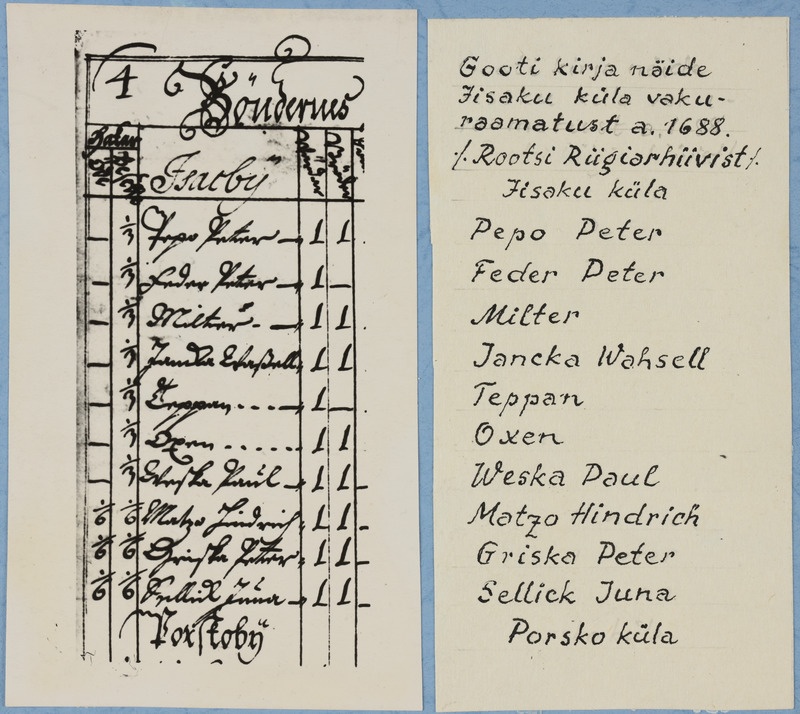 4 Böndernes
Isacby
1/3 Pepo Peter 1 1
1/3 Feder Peter 1
1/3 Milter 1 1
1/3 Jancka Waßell 1 1
1/3 Teppan 1
1/3 Oxen 1 1
1/3 Weska Paul 1 1
1/6 1/6 Matzo Hindrich 1 1
1/6 1/6 Griska Peter 1 1
1/6 1/6 Sellick Juna 1 1
Porskobÿ
Gooti kirja näide
Iisaku küla vaku-
raamatust a. 1688.
/. Rootsi Riigiarhiivist /.
Iisaku küla
Pepo Peter
Feder Peter
Milter
Jancka Wahsell
Teppan
Oxen
Weska Paul
Matzo Hindrich
Griska Peter
Sellick Juna
Porsko küla